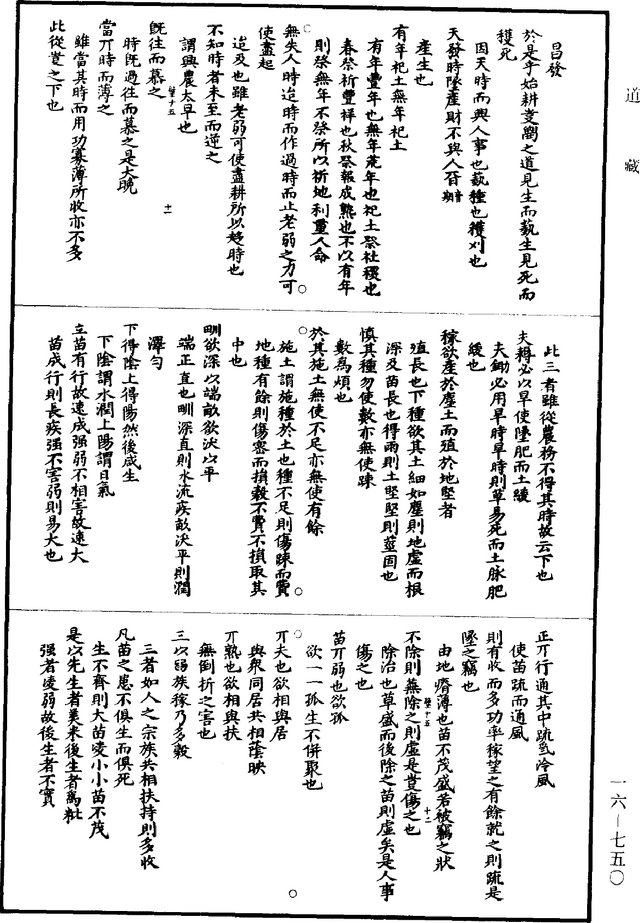 道藏
昌發
於是乎始耕耋劉之道見生而藝生見死而
穫死
因天時而興人事也藝種也穫刈也
天發時墜産財不與人
産生也
有年祀土無年祀土
有年豐年也無年荒年也祀土祭社稷也
春祭祈豐祥也秋祭報成熟也不以有年
則祭無年不祭所以祈地利重人命
無失人時迨時而作過時而止老弱之力可
使盡起
迨及也雖老弱可使盡耕所以趍時也
不知時者未至而逆之
謂興農太早也
旣往而慕之
壁十五
十一
時旣過往而慕之是大晚
當丌時而薄之
雖當其時而用功寡薄所收亦不多
此從耋之下也
此三者雖從農務不得其時故云下也
夫耨必以旱使墜肥而土緩
夫鋤必用旱時旱時則草易死而土脉肥
緩也
稼欲産於塵土而殖於地堅者
殖長也下種欲其土細如塵則地虛而根
深及苗長也得雨則土堅堅則莖固也
慎其種勿使數亦無使踈
數爲煩也
於其施土無使不足亦無使有餘
施土謂施種於土也種不足則傷踈而費
地種有餘則傷密而損穀不費不損取其
中也
甽欲深以端畝欲沃以平
端正直也甽深直則水流疾畝沃平則潤
澤勻
下得陰上得陽然後咸生
下陰謂水潤上陽謂日氣
立苗有行故速成强弱不相害故速大
苗成行則長疾强不害弱則易大也
正丌行通其中疏㲴冷風
使苗疏而通風
則有收而多功率稼望之有餘就之則疏是
墜之竊也
由地瘠薄也苗不茂盛若被竊之狀
不除則蕪除之則虛是耋傷之也
壁十五
十二
除治也草盛而後除之苗則虛矣是人事
傷之也
苗丌弱也欲孤
欲一一孤生不併聚也
丌夫也欲相與居
與衆同居共相蔭映
丌熟也欲相與扶
無倒折之害也
三以爲族稼乃多穀
三者如人之宗族共相扶持則多收
凡苗之患不俱生而俱死
生不齊則大苗凌小小苗不茂
是以先生者美米後生者爲粃
强者凌弱故後生者不實
一六—七五〇